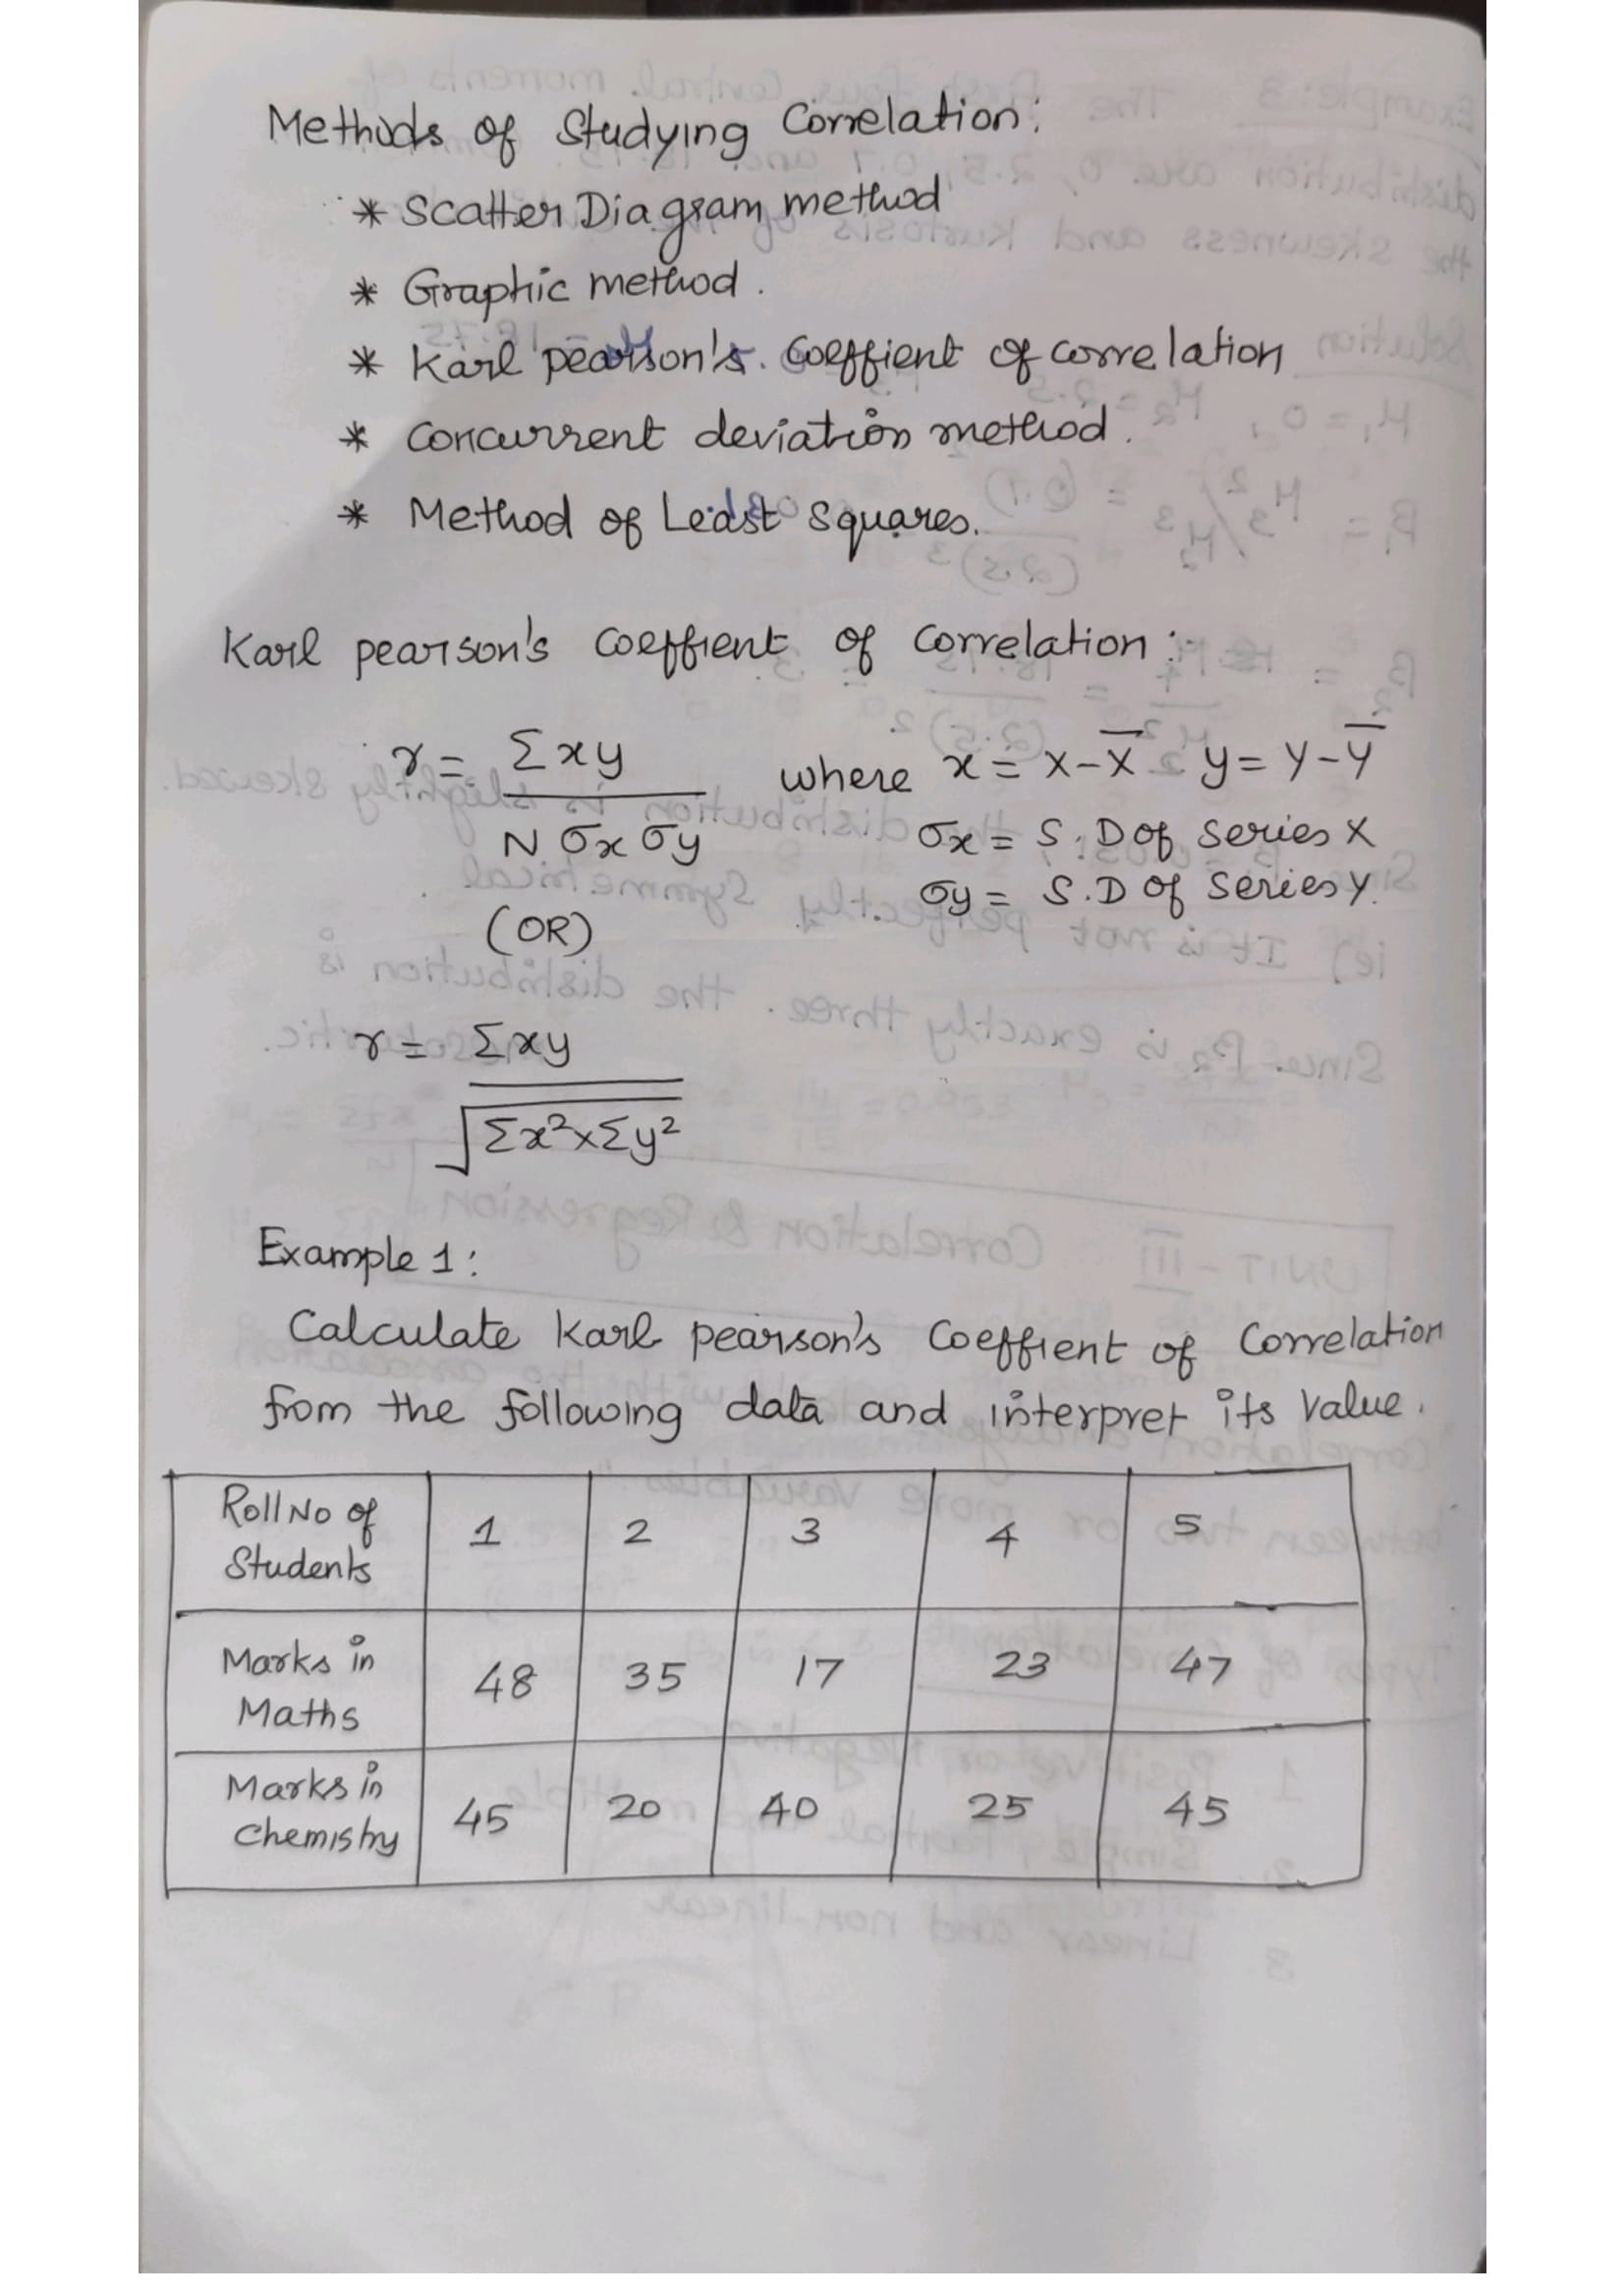 Methods of Studying Correlation:
* Scatter Diagram method
* Graphic method.
* Karl pearson's. Coeffient of correlation
* Concurrent deviation method.
* Method of Least Squares.
Karl pearson's Coeffient of Correlation:-
r = Σxy / N σx σy where x = X-X̅ y = Y-Y̅
σx = S.D of Series X
σy = S.D of Series Y.
(OR)
r = Σxy / √Σx²×Σy²
Example 1:
Calculate Karl pearson's Coeffient of Correlation
from the following data and interpret its Value.
Roll No of Students 1 2 3 4 5
Marks in Maths 48 35 17 23 47
Marks in Chemistry 45 20 40 25 45